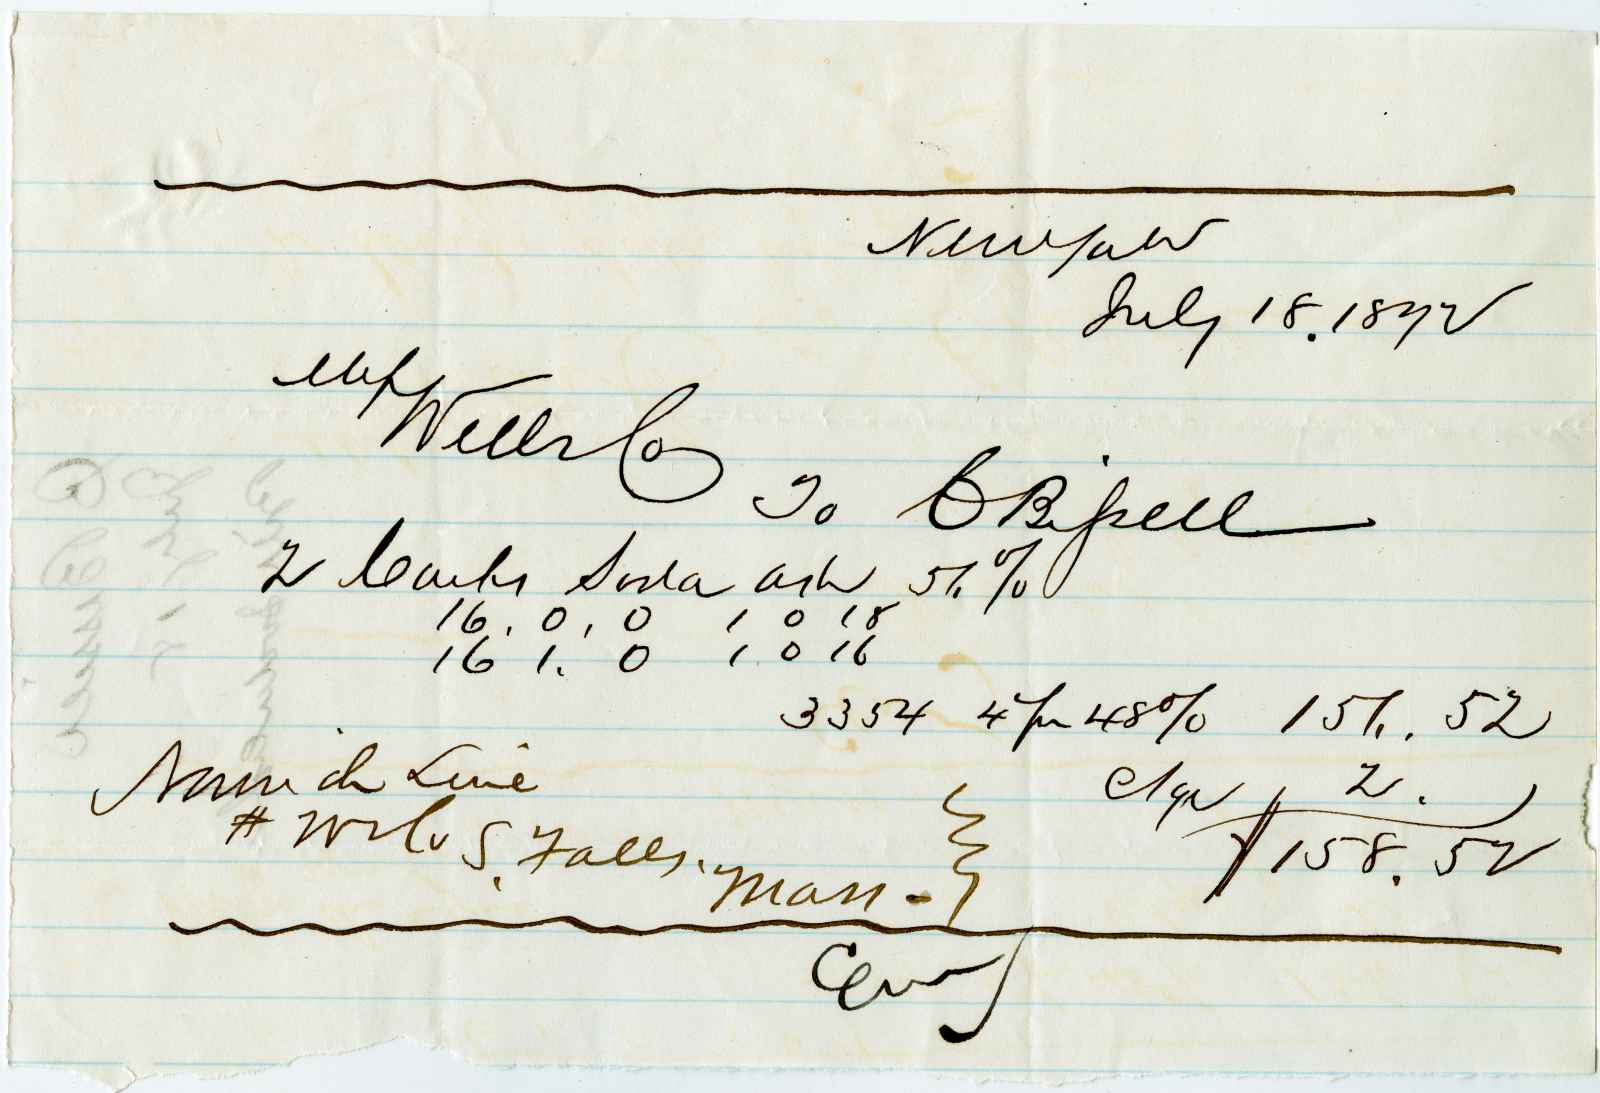 New York
July 18. 1872
Mess
Wells Co
To C Bissell
2 Casks Soda ash 56%
16. 0. 0 1 0 18
16 1. 0 1. 0 16
3354 4 pr 48% 156. 52
Norwich Line
Chgs 2.
# W & Co S. Falls. Mass.
$158. 52